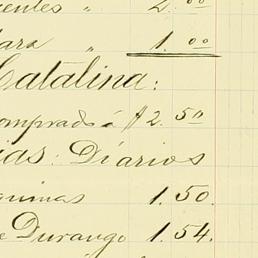 uentes " 2.00
ara " 1.00
Catalina:
omprado á $2.50
ias: Diarios
quinas 1.50.
e Durango 1.54.